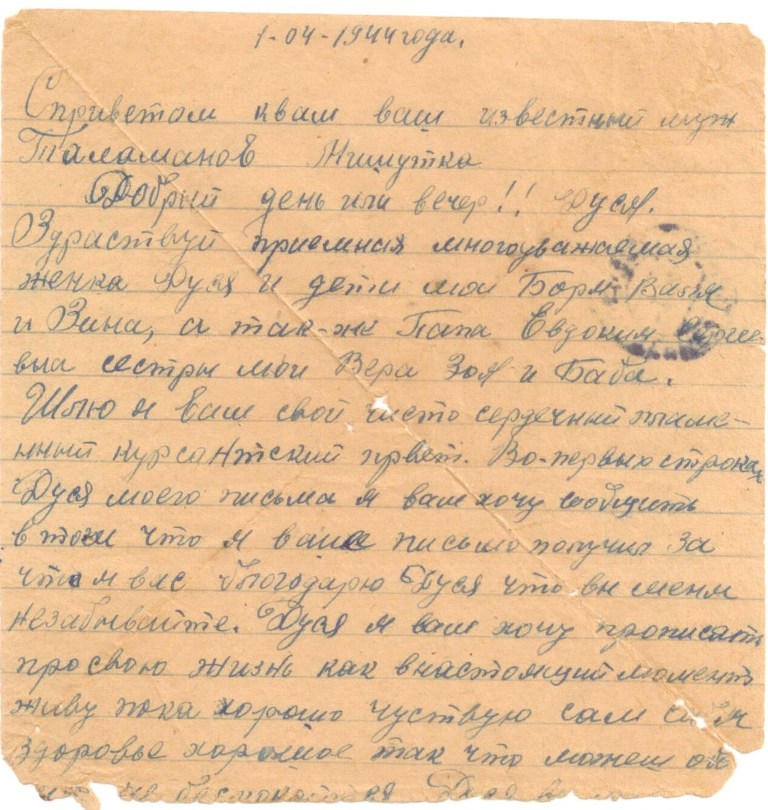 1-04-1944 года.
С приветом к вам ваш известный муж
Таламанов Мишутка
Добрый день или вечер!! Дуся.
Здраствуй приемная многоуважаемая
женка Дуся и дети мои Боря Вася
и Зина, а так-ж Папа Евдоким
вна сестры мои Вера Зоя и Баба.
Шлю я вам свой чисто сердечный пламе-
нный курсантский првет. Во-первых строках
Дуся моего письма я вам хочу сообщить
в том что я ваше письмо получил за
что я вас благодарю Дуся что вы меня
незабывайте. Дуся я вам хочу прописать
про свою жизнь как внастоящий моменть
живу пока хорошо чуствую сам себя
здоровье хорошое так что можеш об
не беспокоится Дуся